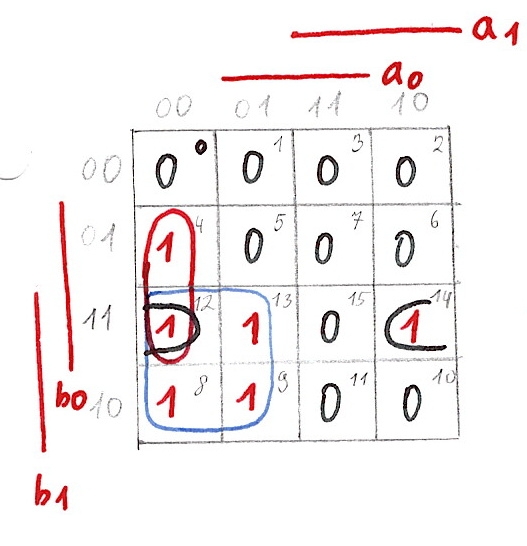 a1
a0
00 01 11 10
00 0 0 0 1 0 3 0 2
01 1 4 0 5 0 7 0 6
11 1 12 1 13 0 15 1 14
10 1 8 1 9 0 11 0 10
b0
b1